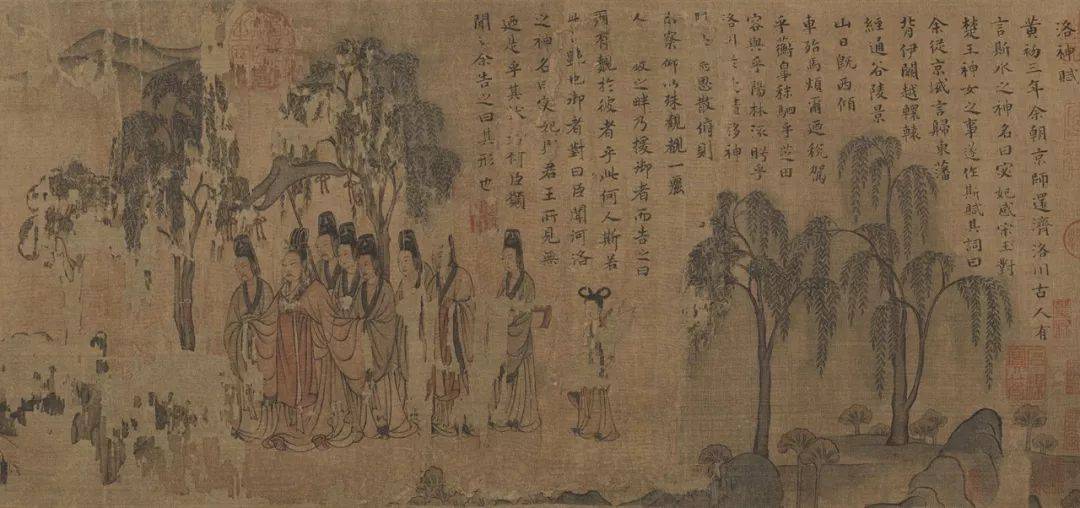 洛神賦
黄初三年余朝京師還濟洛川古人有
言斯水之神名曰宓妃感宋玉對
楚王神女之事遂作斯賦其詞曰
余從京域言歸東藩
背伊闕越轘轅
經通谷陵景
山日既西傾
車殆馬煩爾迺稅駕
乎蘅皐秣駟乎芝田
容與乎陽林流眄乎
洛川 移神
思散俯則
未察仰以殊觀覩一麗
人 之畔乃援御者而告之曰
爾有覿於彼者乎此何人斯若
此艷也御者對曰臣聞河洛
之神名曰宓妃 君王所見無
迺是乎其狀 何臣願
聞之余告之曰其形也